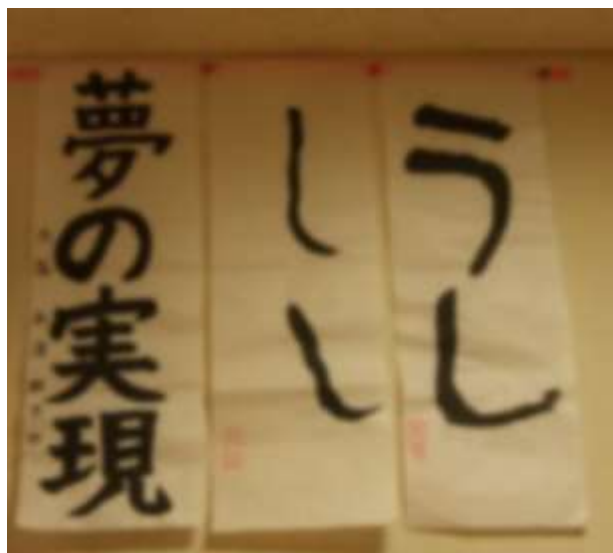 うし
しし
夢の実現